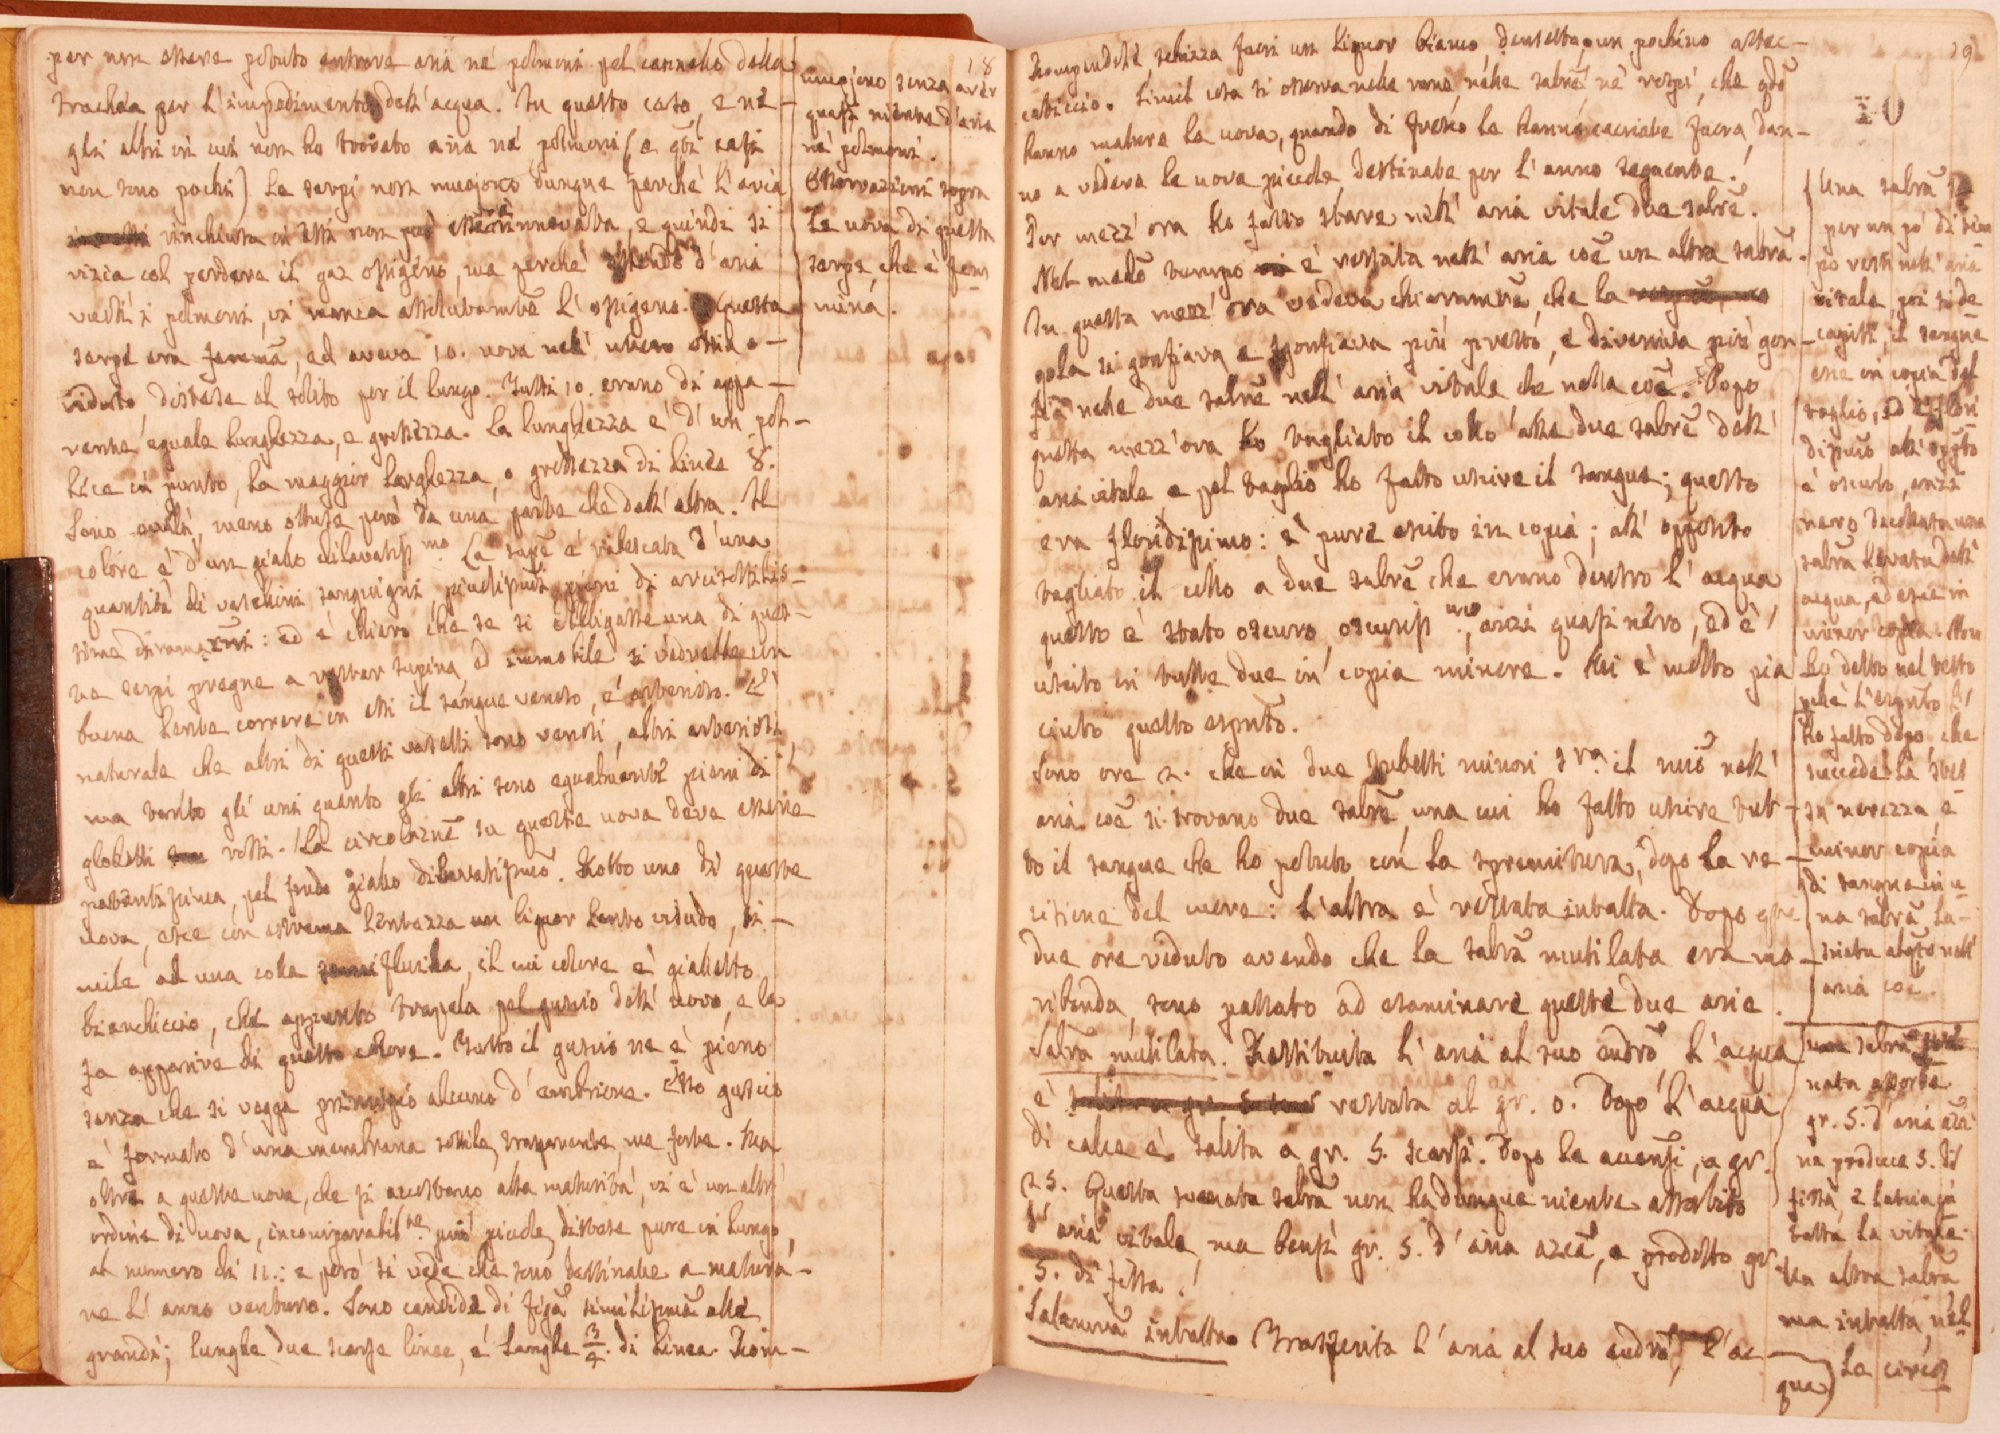 per non essere potuto entrare aria nè polmoni pel cannello della
trachéa per l'impedimento dell'acqua. In questo caso, e ne-
gli altri in cui non ho trovato aria nè polmoni (e q.sti casi
non sono pochi) le serpi non muojono dunque perchè l'aria
rinchiusa in essi non può essere rinnovata, e quindi si
vizia col perdere il gaz ossigéno, ma perchè essendo d'aria
vuoti i polmoni, vi manca assolutamte l'ossigeno. Questa
serpe era femmã, ed aveva 10. uova nell'utero ossia o-
vidutto, distese al solito per il lungo. Tutti 10. erano di appa-
rente eguale lunghezza, e grossezza. La lunghezza è d'un pol-
lice in punto, la maggior larghezza, o grossezza di linee 8.
Sono ovali, meno ottuse però da una parte che dall'altra. Il
colore è d'un giallo dilavatiss.mo La supẽ è vascolata d'una
quantità di vasellini sanguigni, pieni di
: ed è chiaro che se si obligasse una di ques-
te serpi pregne a restar supina, ed immobile si vedrebbe con
buona lente correre in essi il sangue venoso, e arterioso. E'
naturale che altri di questi vaselli sono venosi, altri arteriosi,
ma tanto gli uni quanto gli altri sono egualmente pieni di
globetti rossi. La circolaznẽ su queste uova deve essere
, pel fondo giallo dilavatissimõ. Rotto uno di queste
uova, esce con estrema lentezza un liquor lento viscido, si-
mile ad una colla semifluida, il cui colore è gialletto
bianchiccio, che appunto trapela pel guscio dell'uovo, e lo
fa apparire di questo colore. Tutto il guscio ne è pieno
senza che si vegga principio alcuno d'embrione. Esso guscio
è formato d'una membrana sottile, trasparente, ma forte. Ma
oltre a queste uova, che si accostano alla maturità, vi è un altr'
ordine di uova, incomparabil.te più piccole, distese pure in lungo,
al numero di 11.: e però si vede che sono destinate a matura-
re l'anno venturo. Sono candide di figã similissimẽ alle
grandi; lunghe due scarse linee, e larghe 3/4. di linea. Rom-
18
muojono senza aver
quasi niente d'aria
nè polmoni.
Osservazioni sopra
le uova di questa
serpe che è fem-
mina.
19
10
Rompendole, schizza fuori un liquor bianco densetto, un pochino attac-
caticcio. Simil cosa si osserva nelle rane, nelle salrẽ, nè rospi, che qdõ
hanno mature le uova, quando di fresco le hanno cacciate fuora, dan-
no a vedere le uova piccole destinate per l'anno seguente.
Per mezz'ora ho fatto stare nell'aria vitale due salrẽ.
Nel medõ tempo è restata nell'aria coẽ un'altra salrã.
In questa mezz'ora vedeva chiarammẽ, che la
gola si gonfiava e sgonfiava più presto, e diveniva più gon-
fia nelle due salrẽ nell'aria vitale che nella coẽ. Dopo
questa mezz'ora ho tagliato il collo alle due salrẽ dell'
aria vitale, e pel taglio ho fatto uscire il sangue; questo
era floridissimo: è pure escito in copia; all'opposto
tagliato il collo a due salrẽ che erano dentro l'acqua
questo è stato oscuro, oscuriss.mo, anzi quasi nero, ed è
uscito in tutte due in copia minore. Mi è molto pia-
ciuto questo esprtõ.
Sono ore 2. che in due tubetti minori s.ra il mio nell'
aria coẽ si trovano due salrẽ, una cui ho fatto uscire tut-
to il sangue che ho potuto con la spremitura, dopo la re-
cisione del cuore: l'altra è restata intatta. Dopo qste
due ore veduto avendo che la salrã mutilata era mo-
ribonda, sono passato ad esaminare queste due arie.
Salrã mutilata. Restituita l'aria al suo eudrõ, l'acqua
è restata al gr. 0. Dopo l'acqua
di calce è salita a gr. 5. scarsi. Dopo le accensi, a gr.
25. Questa svenata salrã non ha dunque niente assorbito
d'aria vitale, ma bensì gr. 5. d'aria azcã, e prodotto gr.
5. di fissa.
Salamrã intatta. Trasferita l'aria al suo eudrõ, l'ac-
qua
Una salrã se
per un po' di tem
po resti nell'aria
vitale, poi si de
capiti, il sangue
esce in copia dal
taglio, ed è flori
dissimo all'oppto
è oscuro, anzi
nero decollata una
salrã levata dall'
acqua, ed esce in
minor copia. Non
ho detto nel testo
perchè l'esprtõ l'
ho fatto dopo che
succede la stes-
sa nerezza, e
minor copia
di sangue in u
na salrã la-
sciata alqto nell'
aria coẽ.
Una salrã sve-
nata assorbe
gr. 5. d'aria azca
ne produce 5. di
fissa, e lascia in
tatta la vitale.
Un altra salrã
ma intatta, nel
la circos